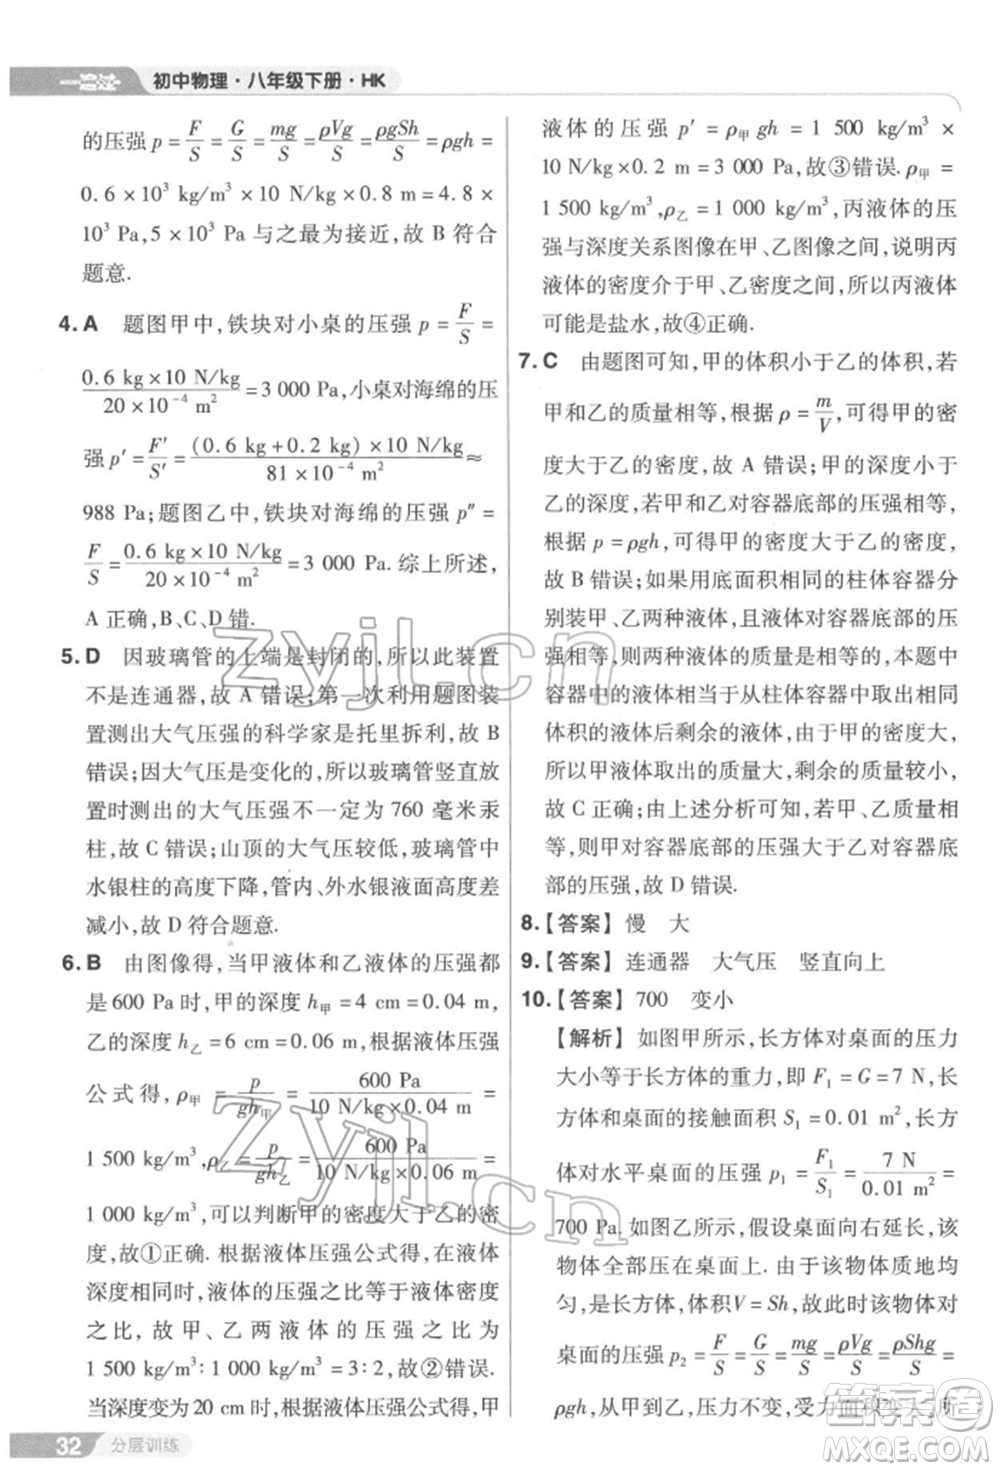 一启迹 初中物理·八年级下册·HK
的压强 p = F/S = G/S = mg/S = ρVg/S = ρgSh/S = ρgh =
0.6 × 10³ kg/m³ × 10 N/kg × 0.8 m = 4.8 ×
10³ Pa, 5 × 10³ Pa 与之最为接近, 故 B 符合
题意.
4. A 题图甲中, 铁块对小桌的压强 p = F/S =
0.6 kg × 10 N/kg / 20 × 10⁻⁴ m² = 3 000 Pa, 小桌对海绵的压
强 p′ = F′/S′ = (0.6 kg + 0.2 kg) × 10 N/kg / 81 × 10⁻⁴ m² ≈
988 Pa; 题图乙中, 铁块对海绵的压强 p″ =
F/S = 0.6 kg × 10 N/kg / 20 × 10⁻⁴ m² = 3 000 Pa. 综上所述,
A 正确, B、C、D 错.
5. D 因玻璃管的上端是封闭的, 所以此装置
不是连通器, 故 A 错误; 第一次利用题图装
置测出大气压强的科学家是托里拆利, 故 B
错误; 因大气压是变化的, 所以玻璃管竖直放
置时测出的大气压强不一定为 760 毫米汞
柱, 故 C 错误; 山顶的大气压较低, 玻璃管中
水银柱的高度下降, 管内、外水银液面高度差
减小, 故 D 符合题意.
6. B 由图像得, 当甲液体和乙液体的压强都
是 600 Pa 时, 甲的深度 h甲 = 4 cm = 0.04 m,
乙的深度 h乙 = 6 cm = 0.06 m, 根据液体压强
公式得, ρ甲 = p/gh甲 = 600 Pa / 10 N/kg × 0.04 m =
1 500 kg/m³, ρ乙 = p/gh乙 = 600 Pa / 10 N/kg × 0.06 m =
1 000 kg/m³, 可以判断甲的密度大于乙的密
度, 故①正确. 根据液体压强公式得, 液体
深度相同, 液体的压强之比等于液体密度
之比, 故甲、乙两液体的压强之比为
1 500 kg/m³ : 1 000 kg/m³ = 3 : 2, 故②错误.
当深度变为 20 cm 时, 根据液体压强公式得, 甲
32 分层训练
液体的压强 p′ = ρ甲gh = 1 500 kg/m³ ×
10 N/kg × 0.2 m = 3 000 Pa, 故③错误. ρ甲 =
1 500 kg/m³, ρ乙 = 1 000 kg/m³, 丙液体的压
强与深度关系图像在甲、乙图像之间, 说明丙
液体的密度介于甲、乙密度之间, 所以丙液体
可能是盐水, 故④正确.
7. C 由题图可知, 甲的体积小于乙的体积, 若
甲和乙的质量相等, 根据 ρ = m/V, 可得甲的密
度大于乙的密度, 故 A 错误; 甲的深度小于
乙的深度, 若甲和乙对容器底部的压强相等,
根据 p = ρgh, 可得甲的密度大于乙的密度,
故 B 错误; 如果用底面积相同的柱体容器分
别装甲、乙两种液体, 液体对容器底部的压
强相等, 两种液体的质量是相等的, 本题中
容器中的液体相当于从柱体容器中取出相同
体积的液体后剩余的液体, 由于甲的密度大,
所以甲液体取出的质量大, 剩余的质量较小,
故 C 正确; 由上述分析可知, 若甲、乙质量相
等, 则甲对容器底部的压强大于乙对容器底
部的压强, 故 D 错误.
8.【答案】 慢 大
9.【答案】 连通器 大气压 竖直向上
10.【答案】 700 变小
【解析】 如图甲所示, 长方体对桌面的压力
大小等于长方体的重力, 即 F₁ = G = 7 N, 长
方体和桌面的接触面积 S₁ = 0.01 m², 长方
体对水平桌面的压强 p₁ = F₁/S₁ = 7 N / 0.01 m² =
700 Pa. 如图乙所示, 假设桌面向右延长, 该
物体全部压在桌面上. 由于该物体质地均
匀, 是长方体, 体积V = Sh, 此时该物体对
桌面的压强 p₂ = F/S = G/S = mg/S = ρVg/S = ρShg/S =
ρgh, 相当于压力、压强不变, 面积变大, 所
zyjl.cn
zyjl.cn
答案圈
MXQE.COM